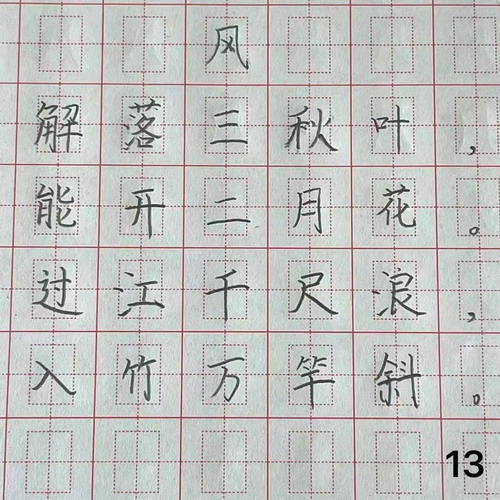 风
解落三秋叶，
能开二月花。
过江千尺浪，
入竹万竿斜。
13